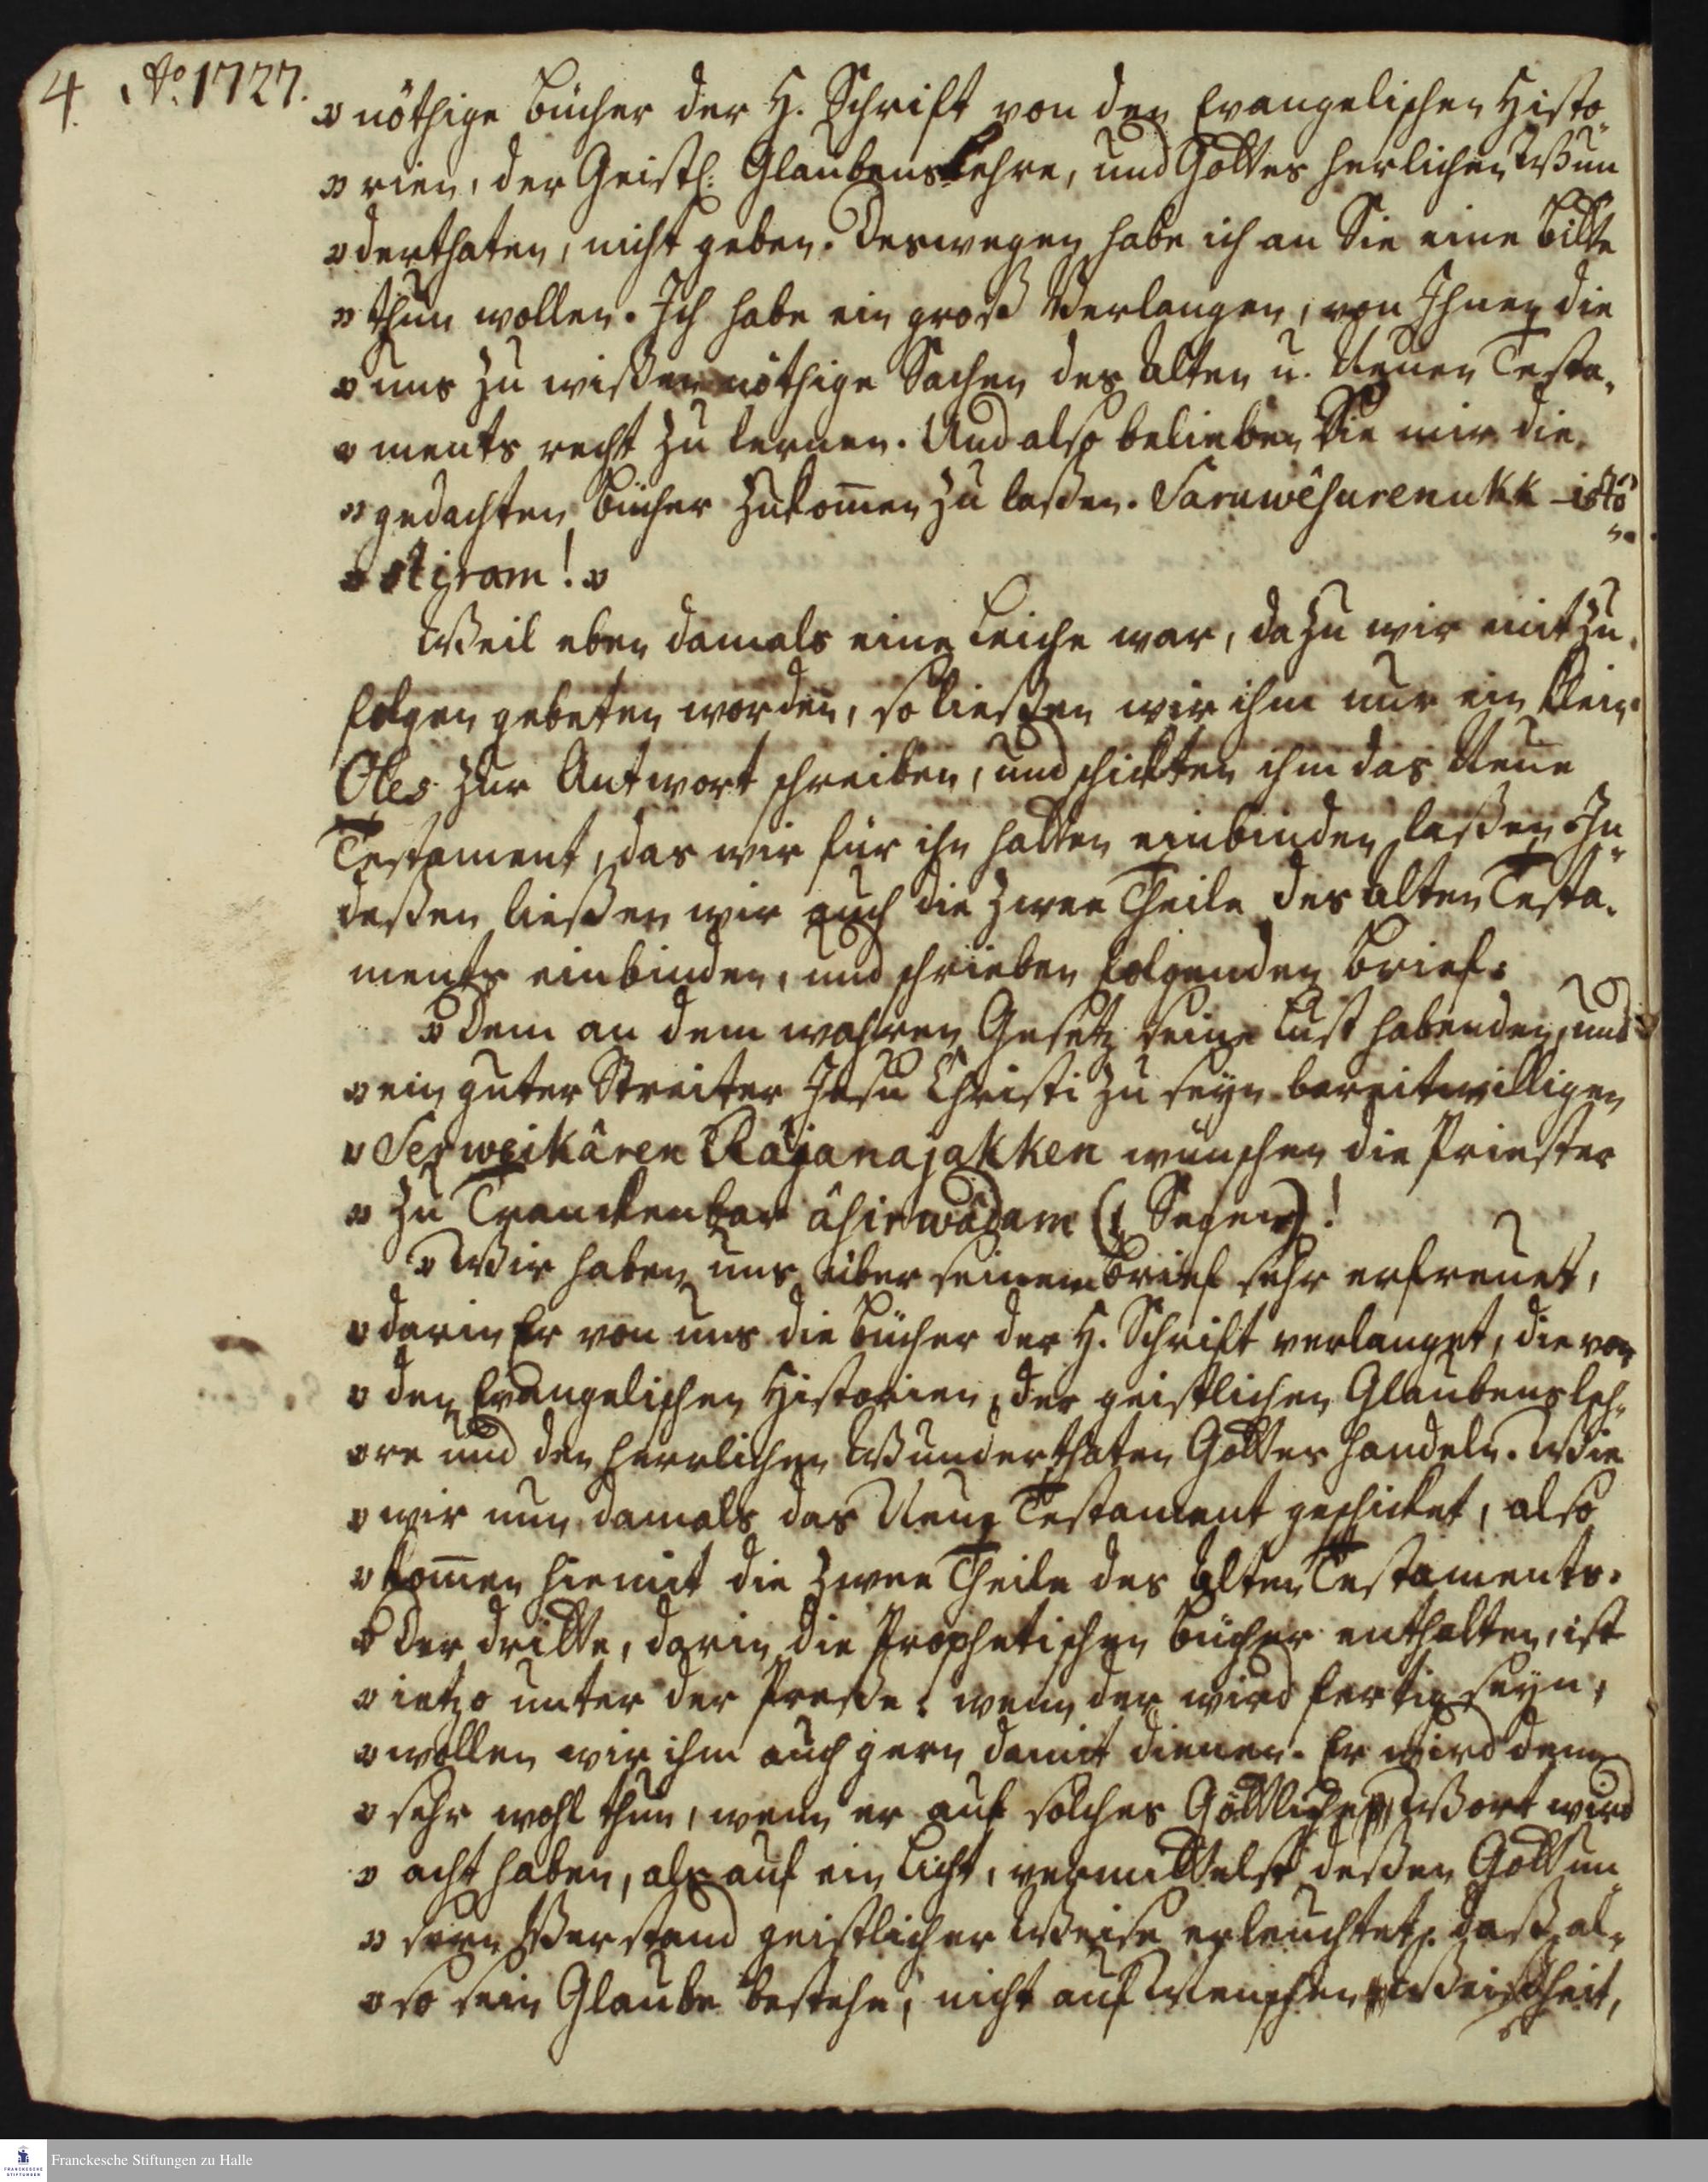 4. Ao. 1727.
„ nöthige Bücher der H. Schrift von den Evangelischen Histo„
„ rien, der Geistl: Glaubenslehre, und Gottes herlichen Wun
„ derthaten, nicht geben. Deswegen habe ich an Sie eine Bitte
„ thun wollen. Ich habe ein groß Verlangen, von Ihnen die
„ uns zu wißen nöthige Sachen des alten u. Neuen Testa„
„ ments recht zu lernen. Und also belieben Sie mir die
„ gedachten Bücher zukom̄en zu laßen. Saruwêsurenukk istô
„ stiram! „
Weil eben damals eine Leiche war, dazu wir mit zu
folgen gebeten worden, so ließen wir ihm nur ein klein
Oles zur Antwort schreiben, und schickten ihm das Neue
Testament, das wir für ihn hatten einbinden laßen. In„
deßen ließen wir auch die zween Theile des alten Testa„
ments einbinden, und schrieben folgenden Brief:
„ Dem an dem wahren Gesetz seine Lust habenden, und
„ ein guter Streiter Jesu Christi zu seyn bereitwilligen
„ Serweikâren Râjanajakken wünschen die Priester
„ zu Tranckenbar âsirwâdam (I Segen)!
„ Wir haben uns über seinem Brief sehr erfreuet,
„ darin Er von uns die Bücher der H. Schrift verlanget, die von
„ den Evangelischen Historien, der geistlichen Glaubensleh„
„ re und den herrlichen Wunderthaten Gottes handeln. Wie
„ wir nun damals das Neue Testament geschicket, also
„ kom̄en hiemit die zween Theile des alten Testaments.
„ Der dritte, darin die Prophetischen Bücher enthalten, ist
„ ietzo unter der Preße: wenn der wird fertig seyn,
„ wollen wir ihm auch gern damit dienen. Er wird denn
„ sehr wohl thun, wenn er auf solches Göttliche Wort wird
„ acht haben, als auf ein Licht, vermittelst deßen Gott un„
„ sern Verstand geistlicher Weise erleuchtet: daß al„
„ so sein Glaube bestehe, nicht auf Menschen Weisheit,
Franckesche Stiftungen zu Halle
FRANCKESCHE
STIFTUNGEN